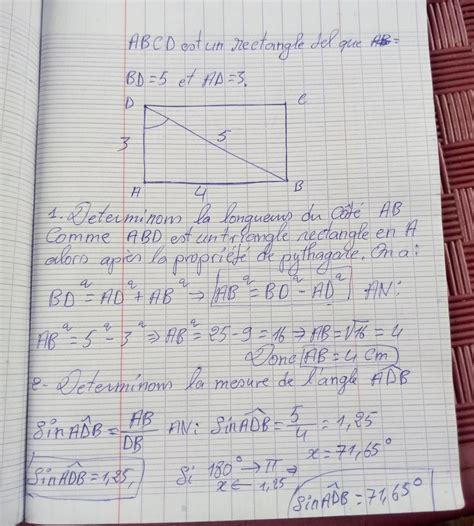 ABCD est un rectangle tel que AB=
BD=5 et AD=3.
D C
3 5
A 4 B
1. Determinons la longueurs du Côté AB
Comme ABD est un triangle rectangle en A
alors après la propriéte de pythagore. On a:
BD²=AD²+AB² → AB²=BD²-AD² AN:
AB²=5²-3² ⇒ AB²=25-9=16 ⇒ AB=√16=4
Donc AB=4 Cm
2- Determinons la mesure de l'angle ADB
Sin ADB = AB/DB AN: Sin ADB = 5/4 = 1,25
x=71,65°
Sin ADB=1,25, Si 180° → π
x ← 1,25
Sin ADB=71,65°